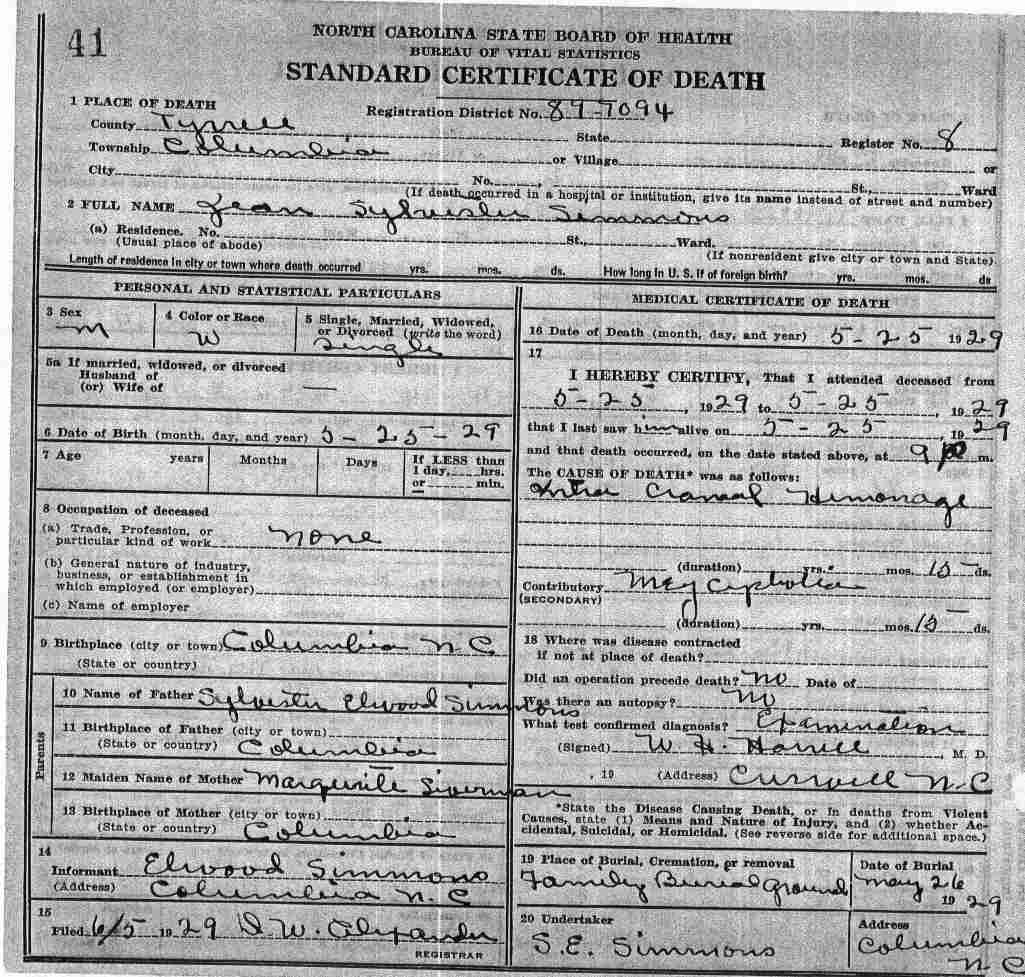 41
NORTH CAROLINA STATE BOARD OF HEALTH
BUREAU OF VITAL STATISTICS
STANDARD CERTIFICATE OF DEATH
1 PLACE OF DEATH
Registration District No. 89-7094
County Tyrrell State Register No. 8
Township Columbia or Village or
City No. , St., Ward
(If death occurred in a hospital or institution, give its name instead of street and number)
2 FULL NAME Jean Sylvester Simmons
(a) Residence. No. St., Ward.
(Usual place of abode) (If nonresident give city or town and State)
Length of residence in city or town where death occurred yrs. mos. ds. How long in U. S. if of foreign birth? yrs. mos. ds
PERSONAL AND STATISTICAL PARTICULARS
3 Sex
M
4 Color or Race
W
5 Single, Married, Widowed,
or Divorced (write the word)
Single
5a If married, widowed, or divorced
Husband of
(or) Wife of —
6 Date of Birth (month, day, and year) 5-25-29
7 Age years Months Days
If LESS than
1 day, hrs.
or min.
8 Occupation of deceased
(a) Trade, Profession, or
particular kind of work none
(b) General nature of industry,
business, or establishment in
which employed (or employer)
(c) Name of employer
9 Birthplace (city or town) Columbia N C
(State or country)
Parents
10 Name of Father Sylvester Elwood Simmons
11 Birthplace of Father (city or town)
(State or country) Columbia
12 Maiden Name of Mother Marguerite Siverman
13 Birthplace of Mother (city or town)
(State or country) Columbia
14
Informant Elwood Simmons
(Address) Columbia N.C
15
Filed 6/5 1929 D. W. Alexander
REGISTRAR
MEDICAL CERTIFICATE OF DEATH
16 Date of Death (month, day, and year) 5-25 1929
17
I HEREBY CERTIFY, That I attended deceased from
5-25, 1929 to 5-25, 1929
that I last saw him alive on 5-25, 1929
and that death occurred, on the date stated above, at 9 m.
The CAUSE OF DEATH* was as follows:
Intra Cranial Hemorrage
(duration) yrs. mos. 15 ds.
Contributory
(SECONDARY)
(duration) yrs. mos. 15 ds.
18 Where was disease contracted
if not at place of death?
Did an operation precede death? No Date of
Was there an autopsy? No
What test confirmed diagnosis? Examination
(Signed) W. H. Harrell, M. D.
, 19 (Address) N.C
*State the Disease Causing Death, or in deaths from Violent
Causes, state (1) Means and Nature of Injury, and (2) whether Ac-
cidental, Suicidal, or Homicidal. (See reverse side for additional space.)
19 Place of Burial, Cremation, or removal
Family Burial Ground
Date of Burial
May 26
1929
20 Undertaker
S.E. Simmons
Address
Columbia
N C